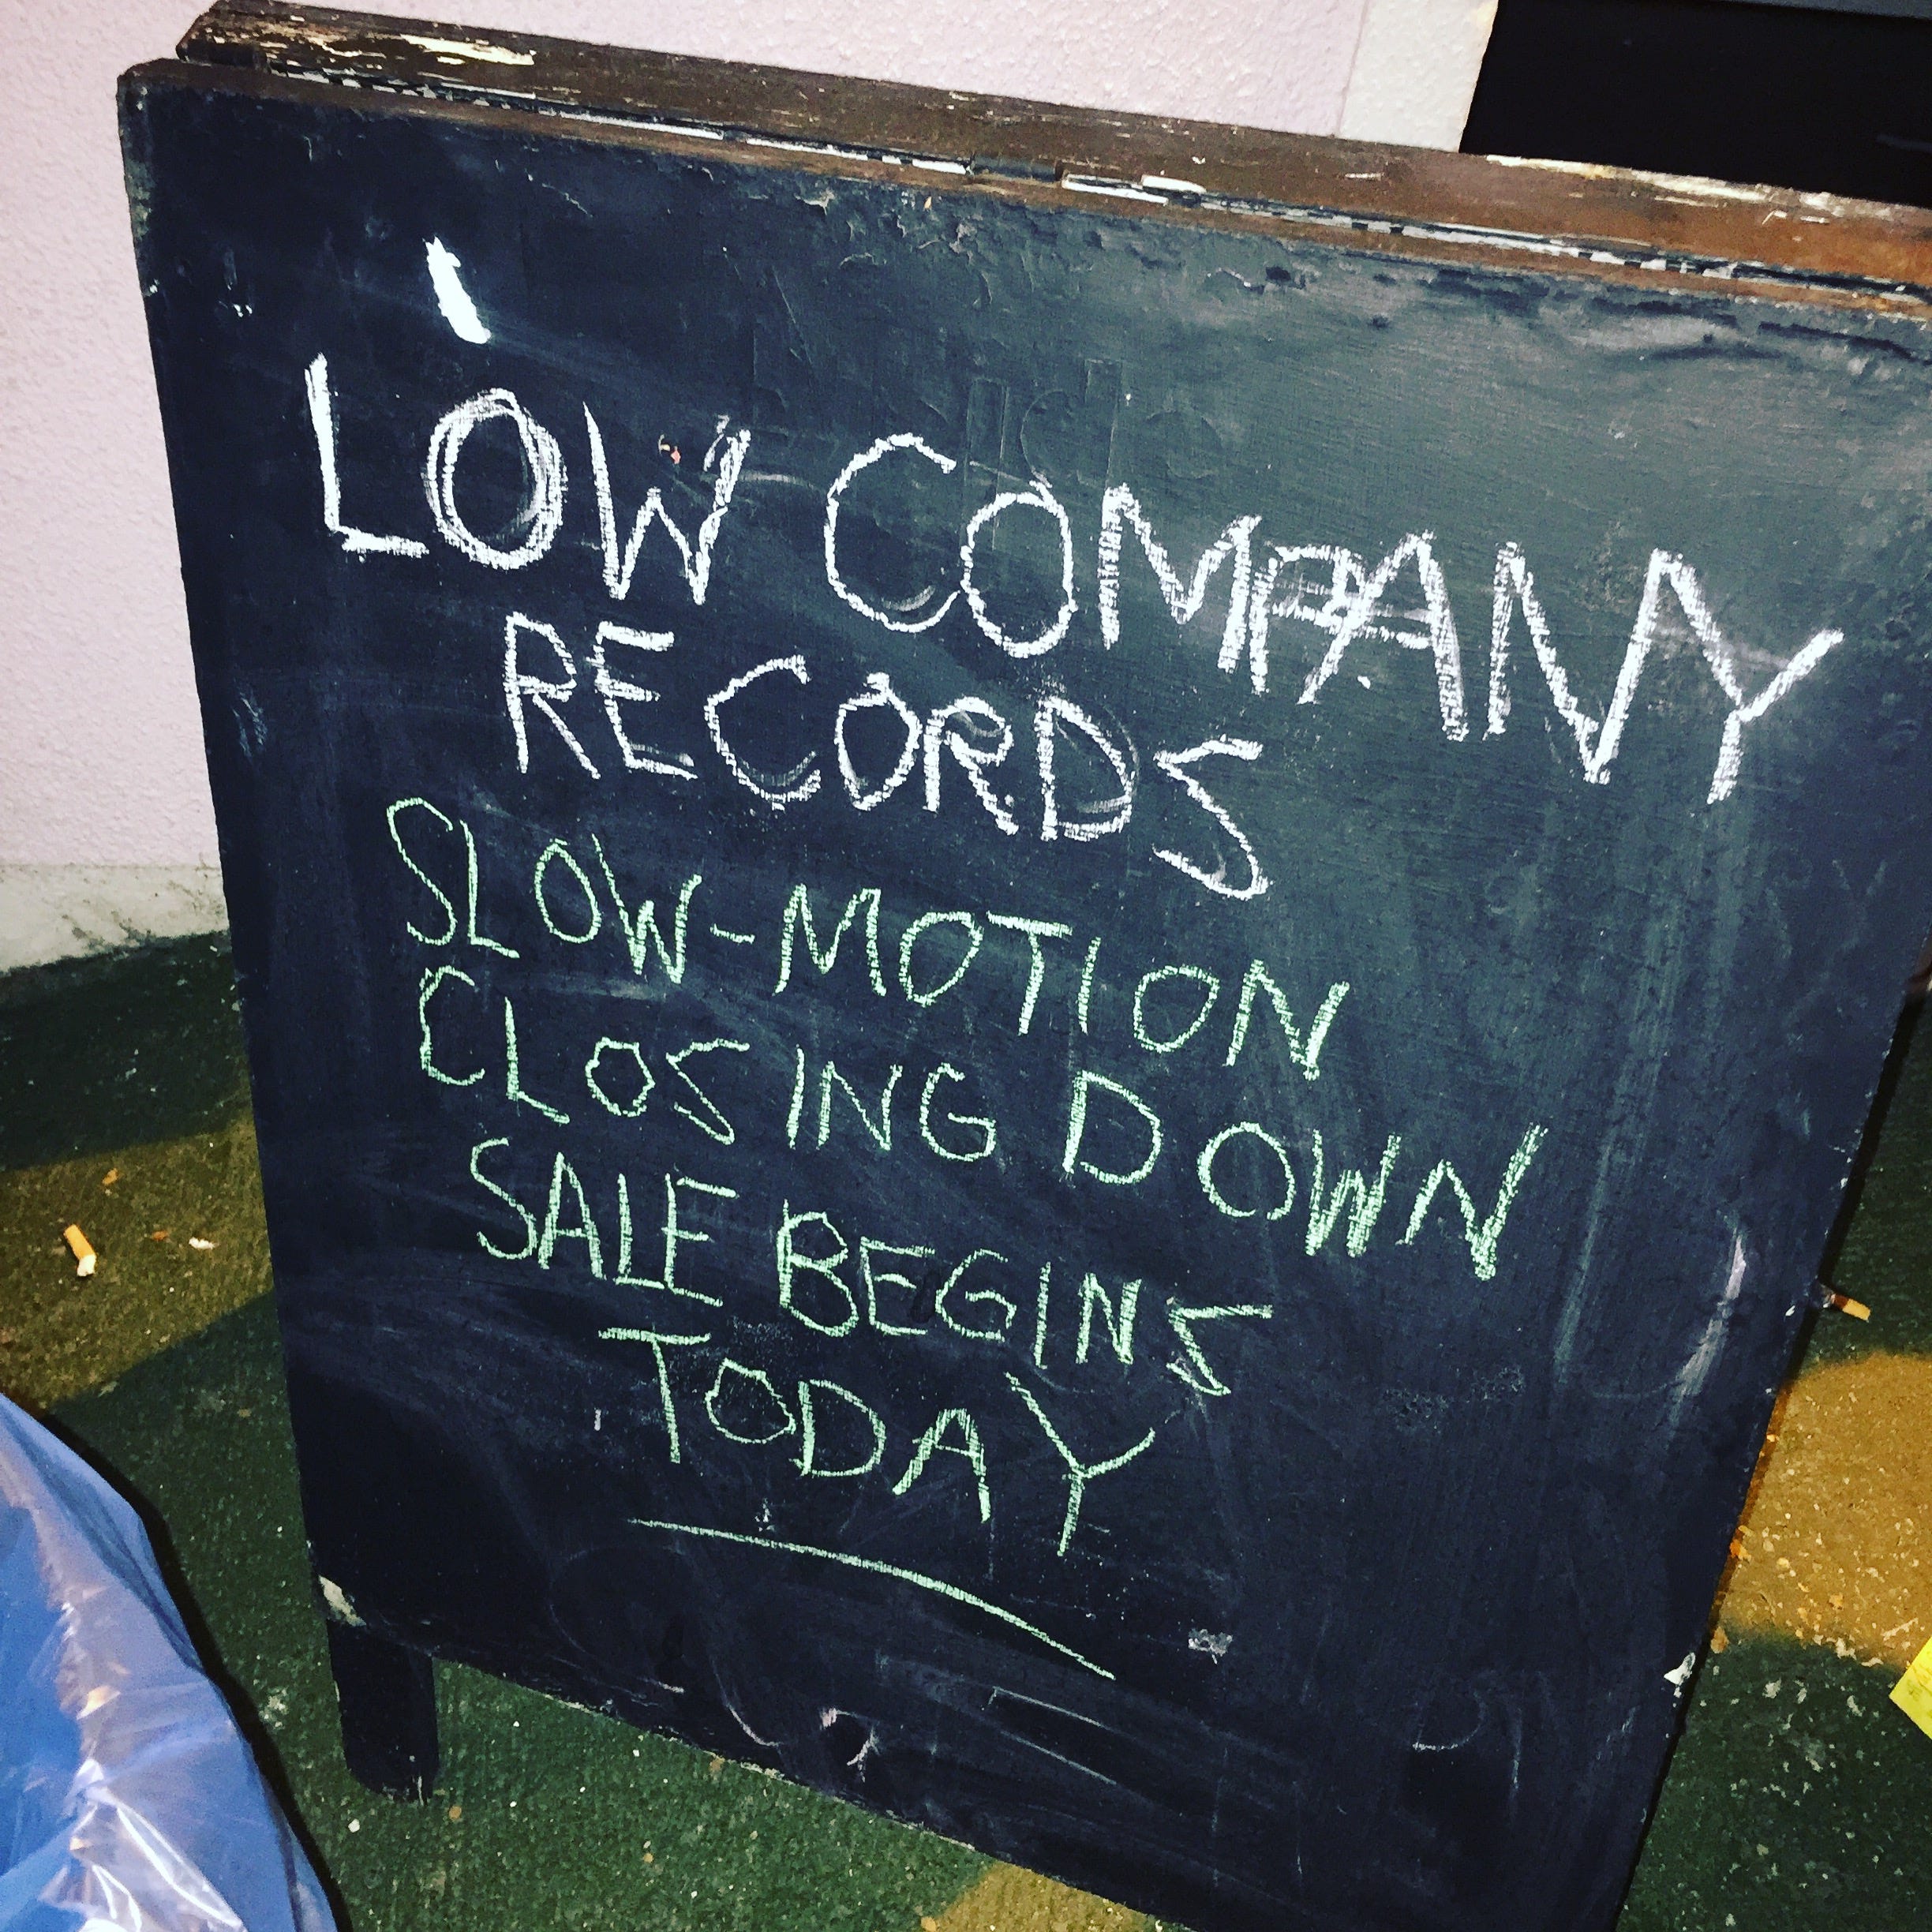 LOW COMPANY
RECORDS
SLOW-MOTION
CLOSING DOWN
SALE BEGINS
TODAY